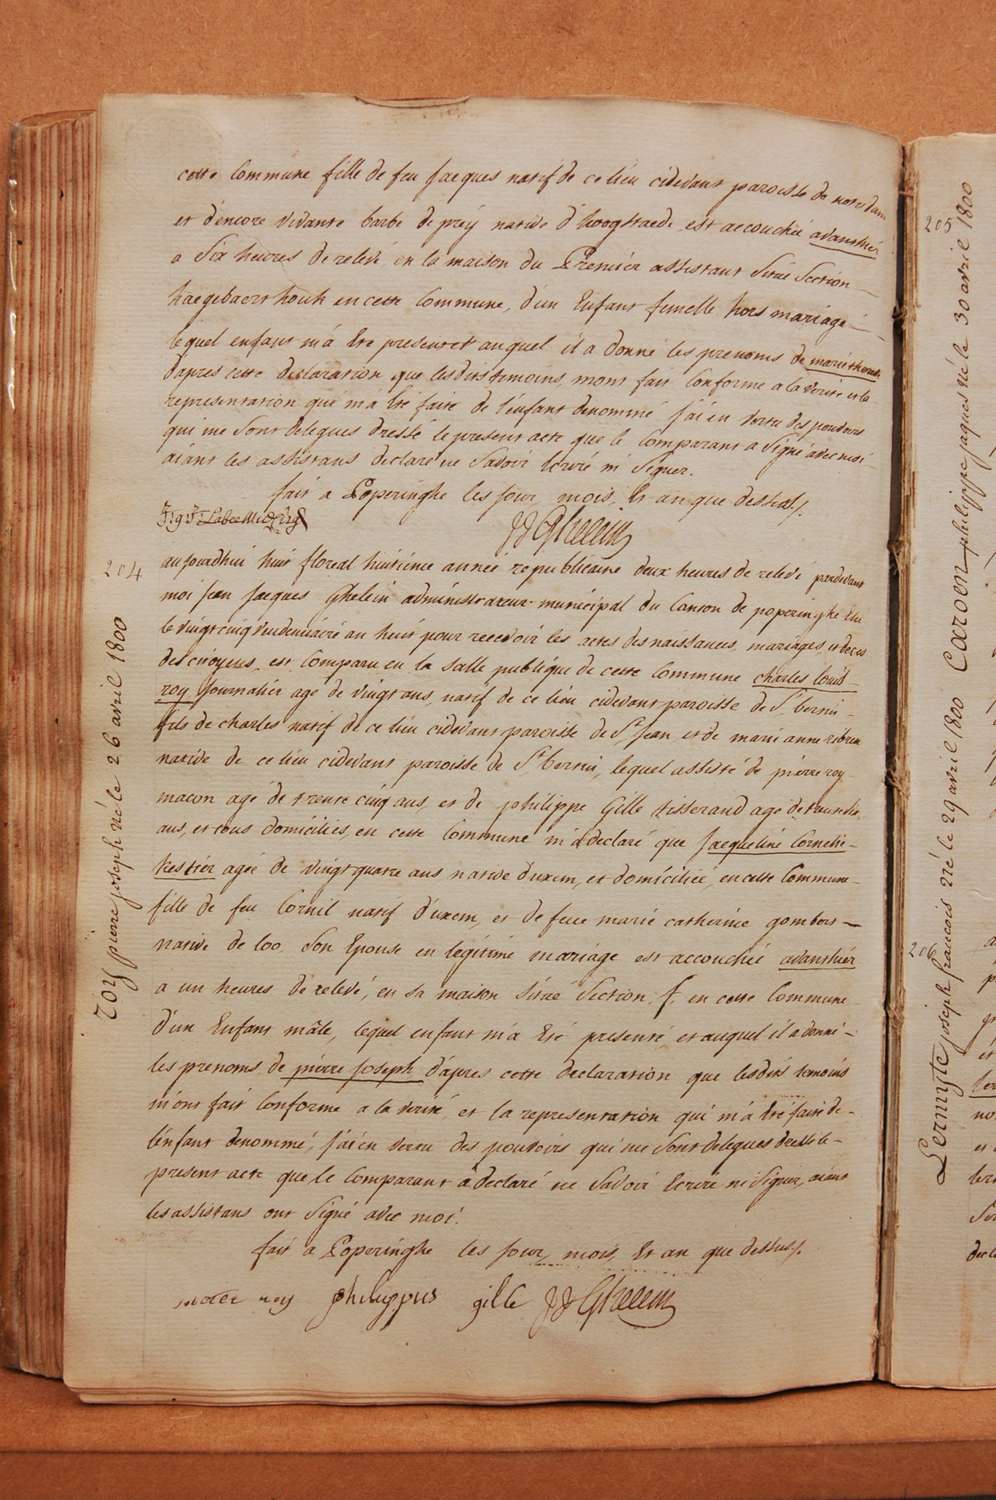 cette Commune fille de feu Jacques natif de ce lieu cidevant paroisse de notre dam
et d'encore vivante barbe de preÿ native d'hoogstaede est accouchée avanthier
a Six heures de relevé en la maison du Premier assistant Sitré Section
haegebaerthouk en cette Commune, d'un Enfant femelle hors mariage
lequel enfant m'a Eté presenté et auquel il a donné les prenoms de
d'apres cette declaration que lesdits temoins m'ont fait Conforme a la verité et la
representation qui m'a Eté faite de l'enfant denommé j'ai en vertu des pouvoirs
qui me Sont delegues dressé le present acte que le Comparant a Signé avec moi
aiant les assistans declaré ne Savoir Ecrire ni Signer.
fait a Poperinghe les jour, mois, Et an que dessus.
JJGhelein
204
aujourdhui huit floreal huitieme année republicaine deux heures de relevé pardevant
moi Jean Jacques Ghelein administrateur municipal du Canton de poperinghe Elu
le vingt cinq vendemiaire an huit pour recevoir les actes des naissances, mariages et deces
des citoyens, est Comparu en la Salle publique de cette Commune charles louis
roy Journalier age de vingt ans, natif de ce lieu cidevant paroisse de St bertin
fils de charles natif de ce lieu cidevant paroisse de St Jean et de marie anne
native de ce lieu cidevant paroisse de St bertin, lequel assisté de pierre roy
macon agé de trente cinq ans, et de philippe Gille tisserand age de
ans, et tous domiciliés en cette Commune m'a declaré que Jacqueline Cornelie
Kestier agée de vingt quatre ans native d'uxem, et domiciliée en cette Commune
fille de feu Cornil natif d'uxem, et de feue marie catherine gombert
native de loo Son Epouse en legitime mariage est accouchée avanthier
a un heures de relevé, en sa maison Sitré Section, f. en cette Commune
d'un Enfant mâle, lequel enfant m'a Eté presenté et auquel il a donné
les prenoms de pierre Joseph d'apres cette declaration que lesdits temoins
m'ont fait Conforme a la verité et la representation qui m'a Eté faite de
l'enfant denommé, J'ai en vertu des pouvoirs qui me Sont delegues dressé le
present acte que le Comparant a declaré ne Savoir Ecrire ni Signer, aiant
les assistans ont Signé avec moi.
fait a Poperinghe les Jour, mois, Et an que dessus.
roy philippus gille JJGhelein
roy pierre joseph né le 26 avril 1800
205
Caroen philippe jaques né le 30 avril 1800
206
Lermyte joseph francois né le 29 avril 1800